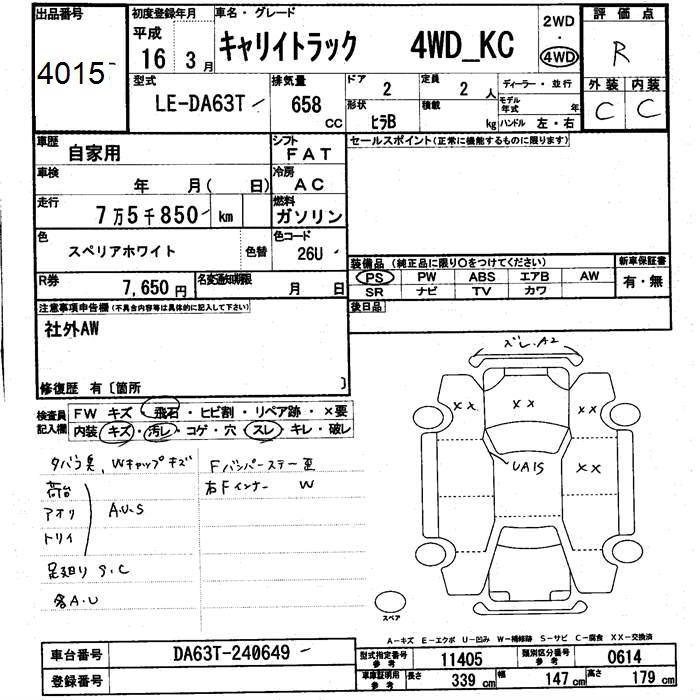 出品番号
4015
初度登録年月
平成
16 3月
車名・グレード
キャリイトラック 4WD_KC
2WD
・
4WD
評価点
R
外装 内装
C C
型式
LE-DA63T
排気量
658
CC
ドア
2
定員
2 人
形状
ヒラB
積載
kg
ディーラー・並行
モデル年式 年
ハンドル 左・右
車歴
自家用
シフト
FAT
車検
年 月( 日)
冷房
AC
走行
7万5千850 km
燃料
ガソリン
色
スペリアホワイト
色替
色コード
26U
R券
7,650 円
名変通知期限
月 日
セールスポイント(正常に機能するものに限ります)
装備品 (純正品に限り○をつけてください)
PS PW ABS エアB AW
SR ナビ TV カワ
新車保証書
有・無
後日品
注意事項申告欄(不具合内容等は具体的に記入して下さい)
社外AW
修復歴 有〔箇所 〕
検査員記入欄
FW キズ・飛石・ヒビ割・リペア跡・×要
内装 キズ・汚レ・コゲ・穴・スレ・キレ・破レ
タバコ臭、Wキャップキズ
荷台
アオリ
トリイ
A.U.S
足廻り S.C
各A.U
Fバンパーステー歪
右Fインナー W
ズレ.A2
XX XX XX
UA1S
XX
スペア
A-キズ E-エクボ U-凹み W-補修跡 S-サビ C-腐食 XX-交換済
車台番号
DA63T-240649
登録番号
型式指定番号
参考
11405
類別区分番号
参考
0614
車庫証明用
参考
長さ
339 cm
幅
147 cm
高さ
179 cm